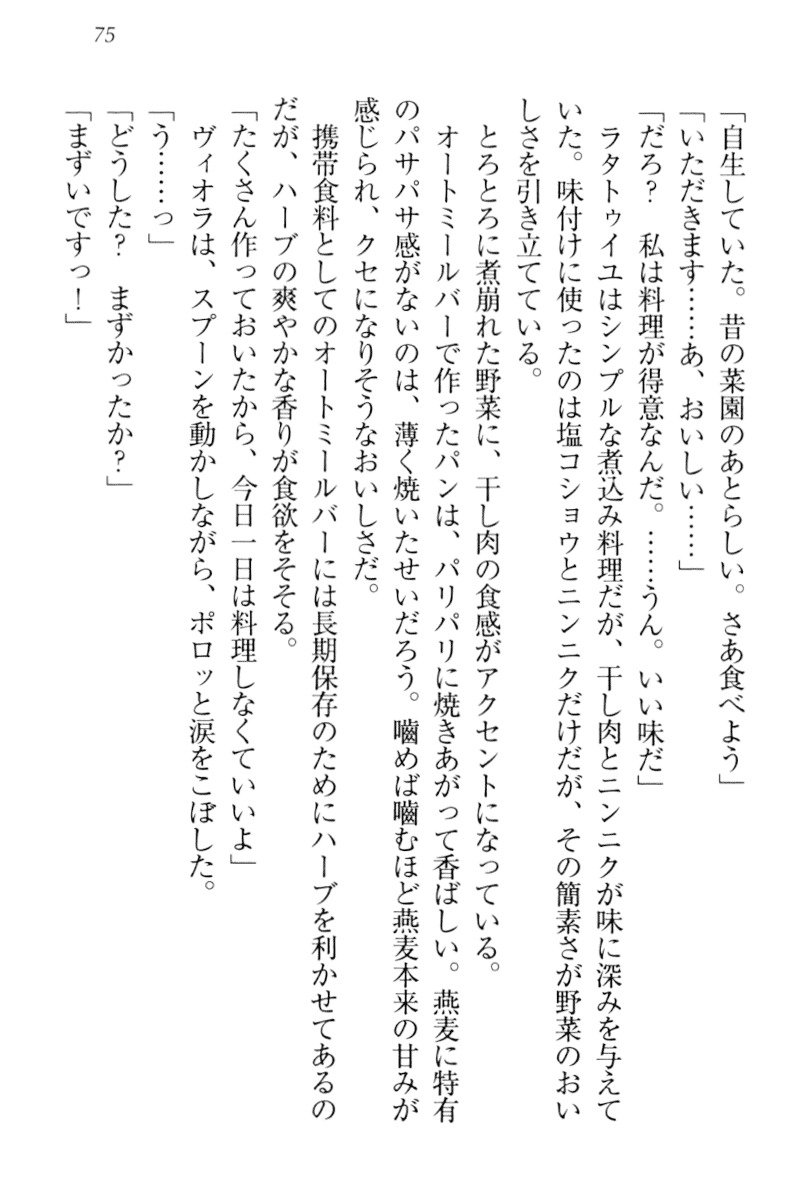 75
「自生していた。昔の菜園のあとらしい。さあ食べよう」
「いただきます……あ、おいしい……」
「だろ？　私は料理が得意なんだ。……うん。いい味だ」
ラタトゥイユはシンプルな煮込み料理だが、干し肉とニンニクが味に深みを与えて
いた。味付けに使ったのは塩コショウとニンニクだけだが、その簡素さが野菜のおい
しさを引き立てている。
とろとろに煮崩れた野菜に、干し肉の食感がアクセントになっている。
オートミールバーで作ったパンは、パリパリに焼きあがって香ばしい。燕麦に特有
のパサパサ感がないのは、薄く焼いたせいだろう。嚙めば嚙むほど燕麦本来の甘みが
感じられ、クセになりそうなおいしさだ。
携帯食料としてのオートミールバーには長期保存のためにハーブを利かせてあるの
だが、ハーブの爽やかな香りが食欲をそそる。
「たくさん作っておいたから、今日一日は料理しなくていいよ」
ヴィオラは、スプーンを動かしながら、ポロッと涙をこぼした。
「う……っ」
「どうした？　まずかったか？」
「まずいですっ！」